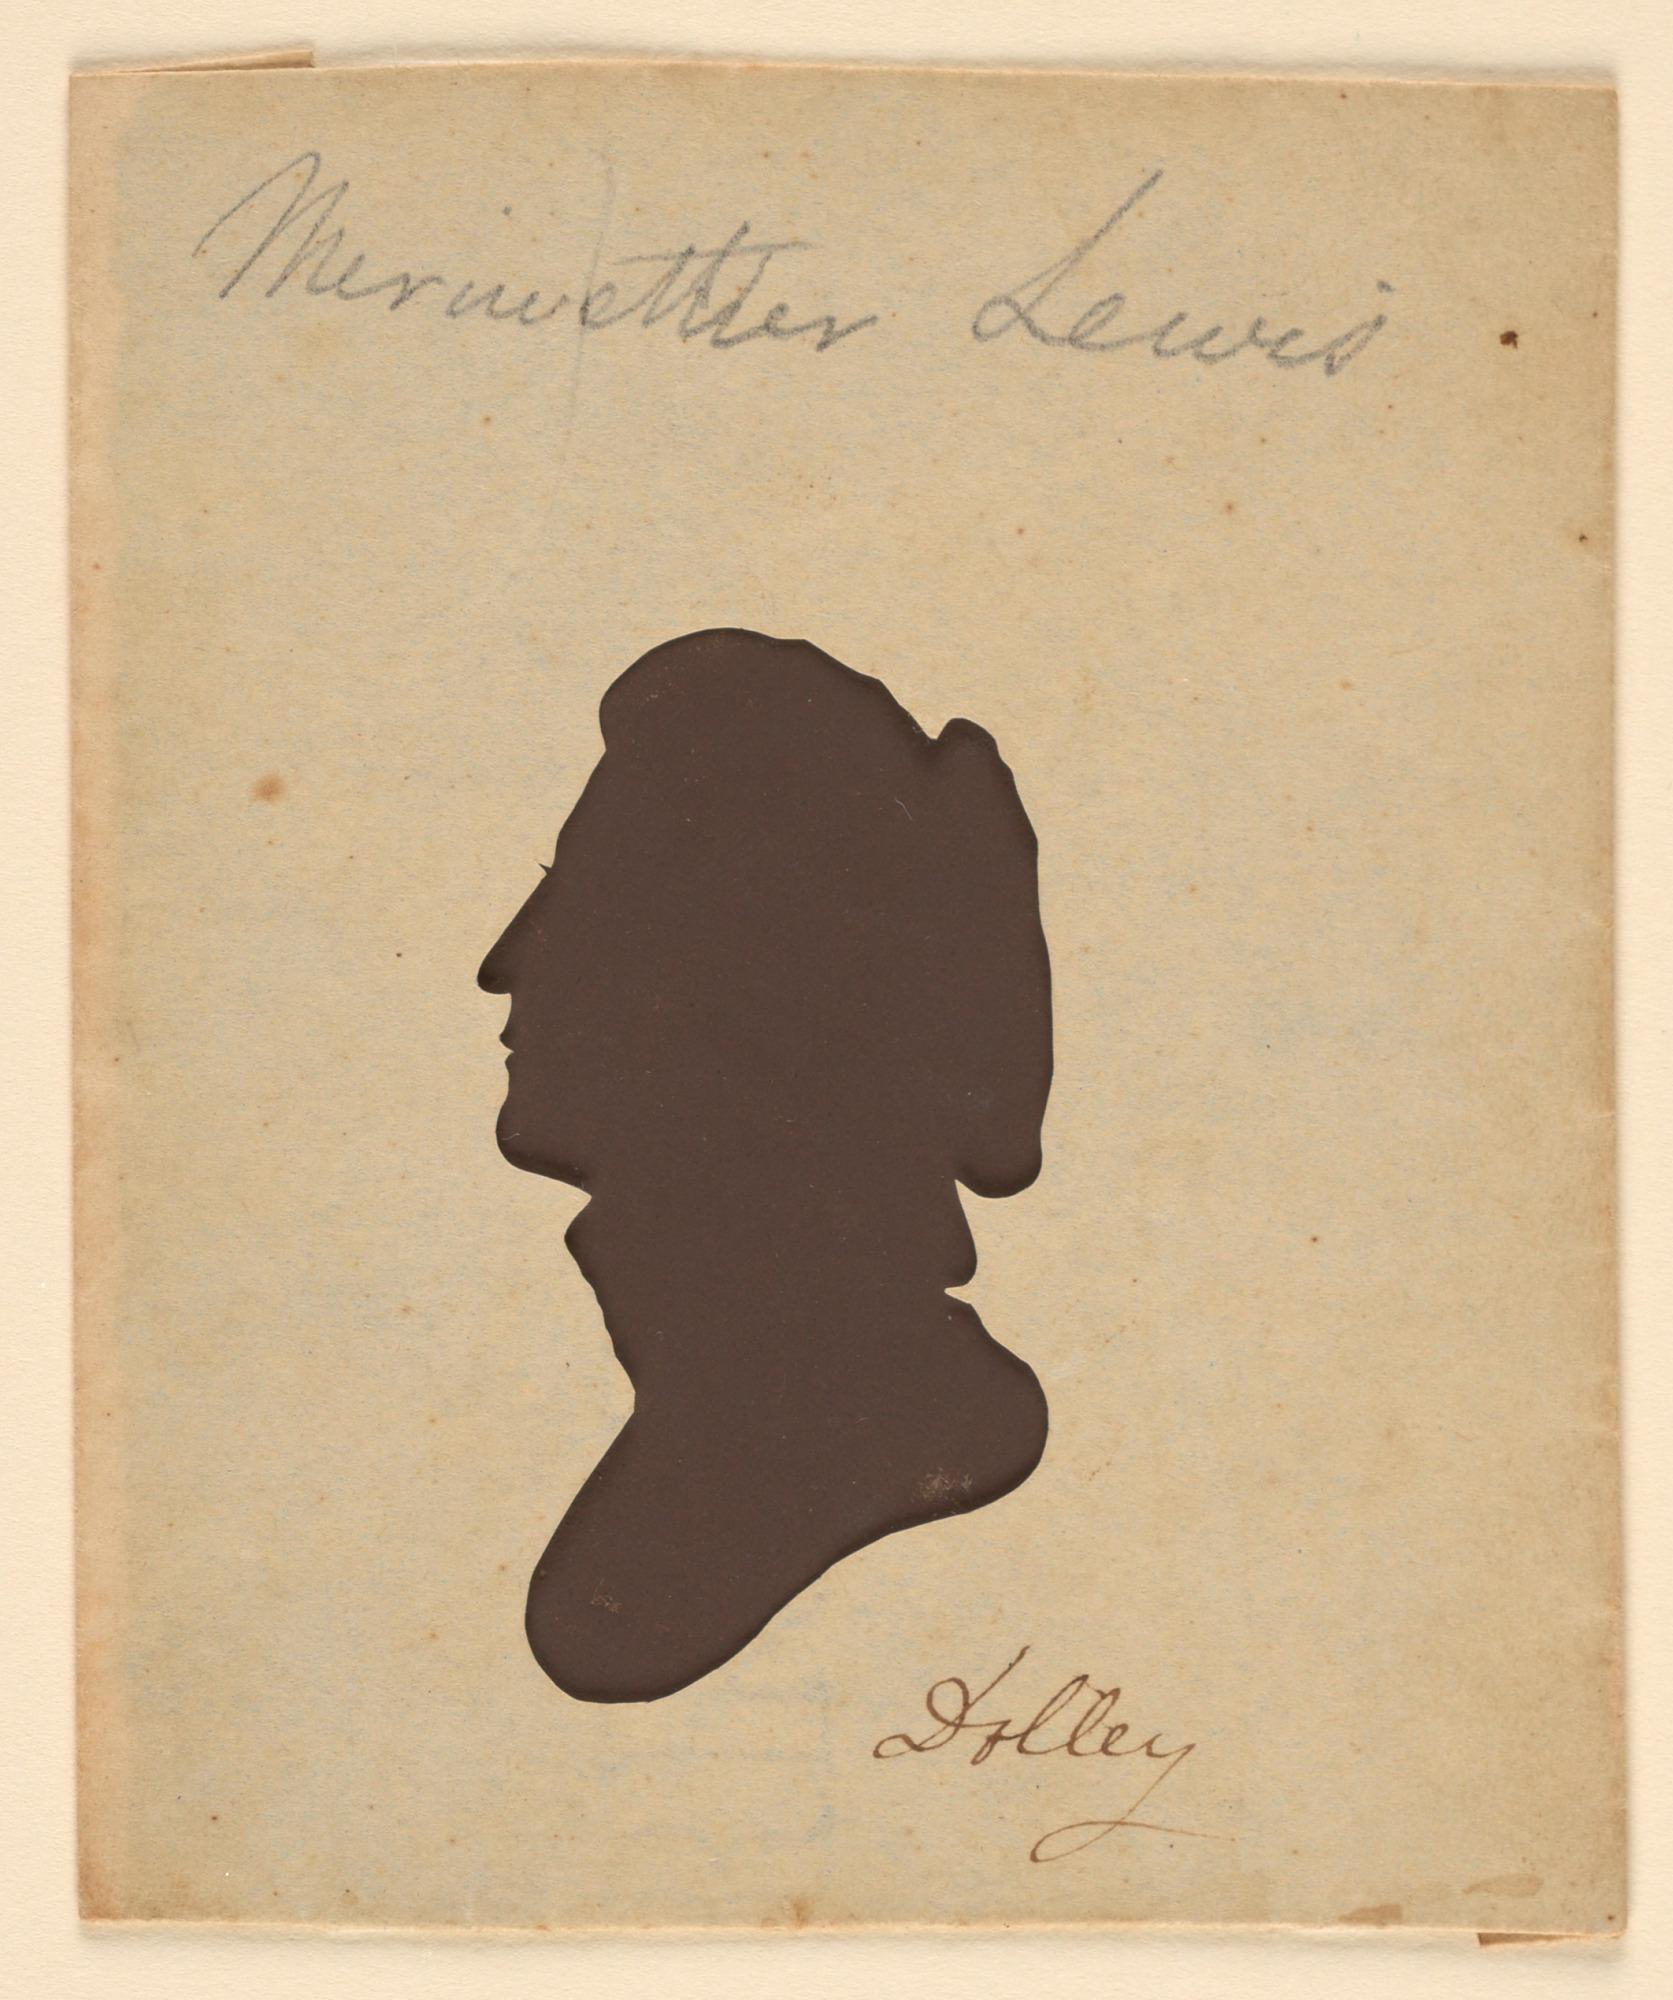 Meriwether Lewis
Dolley